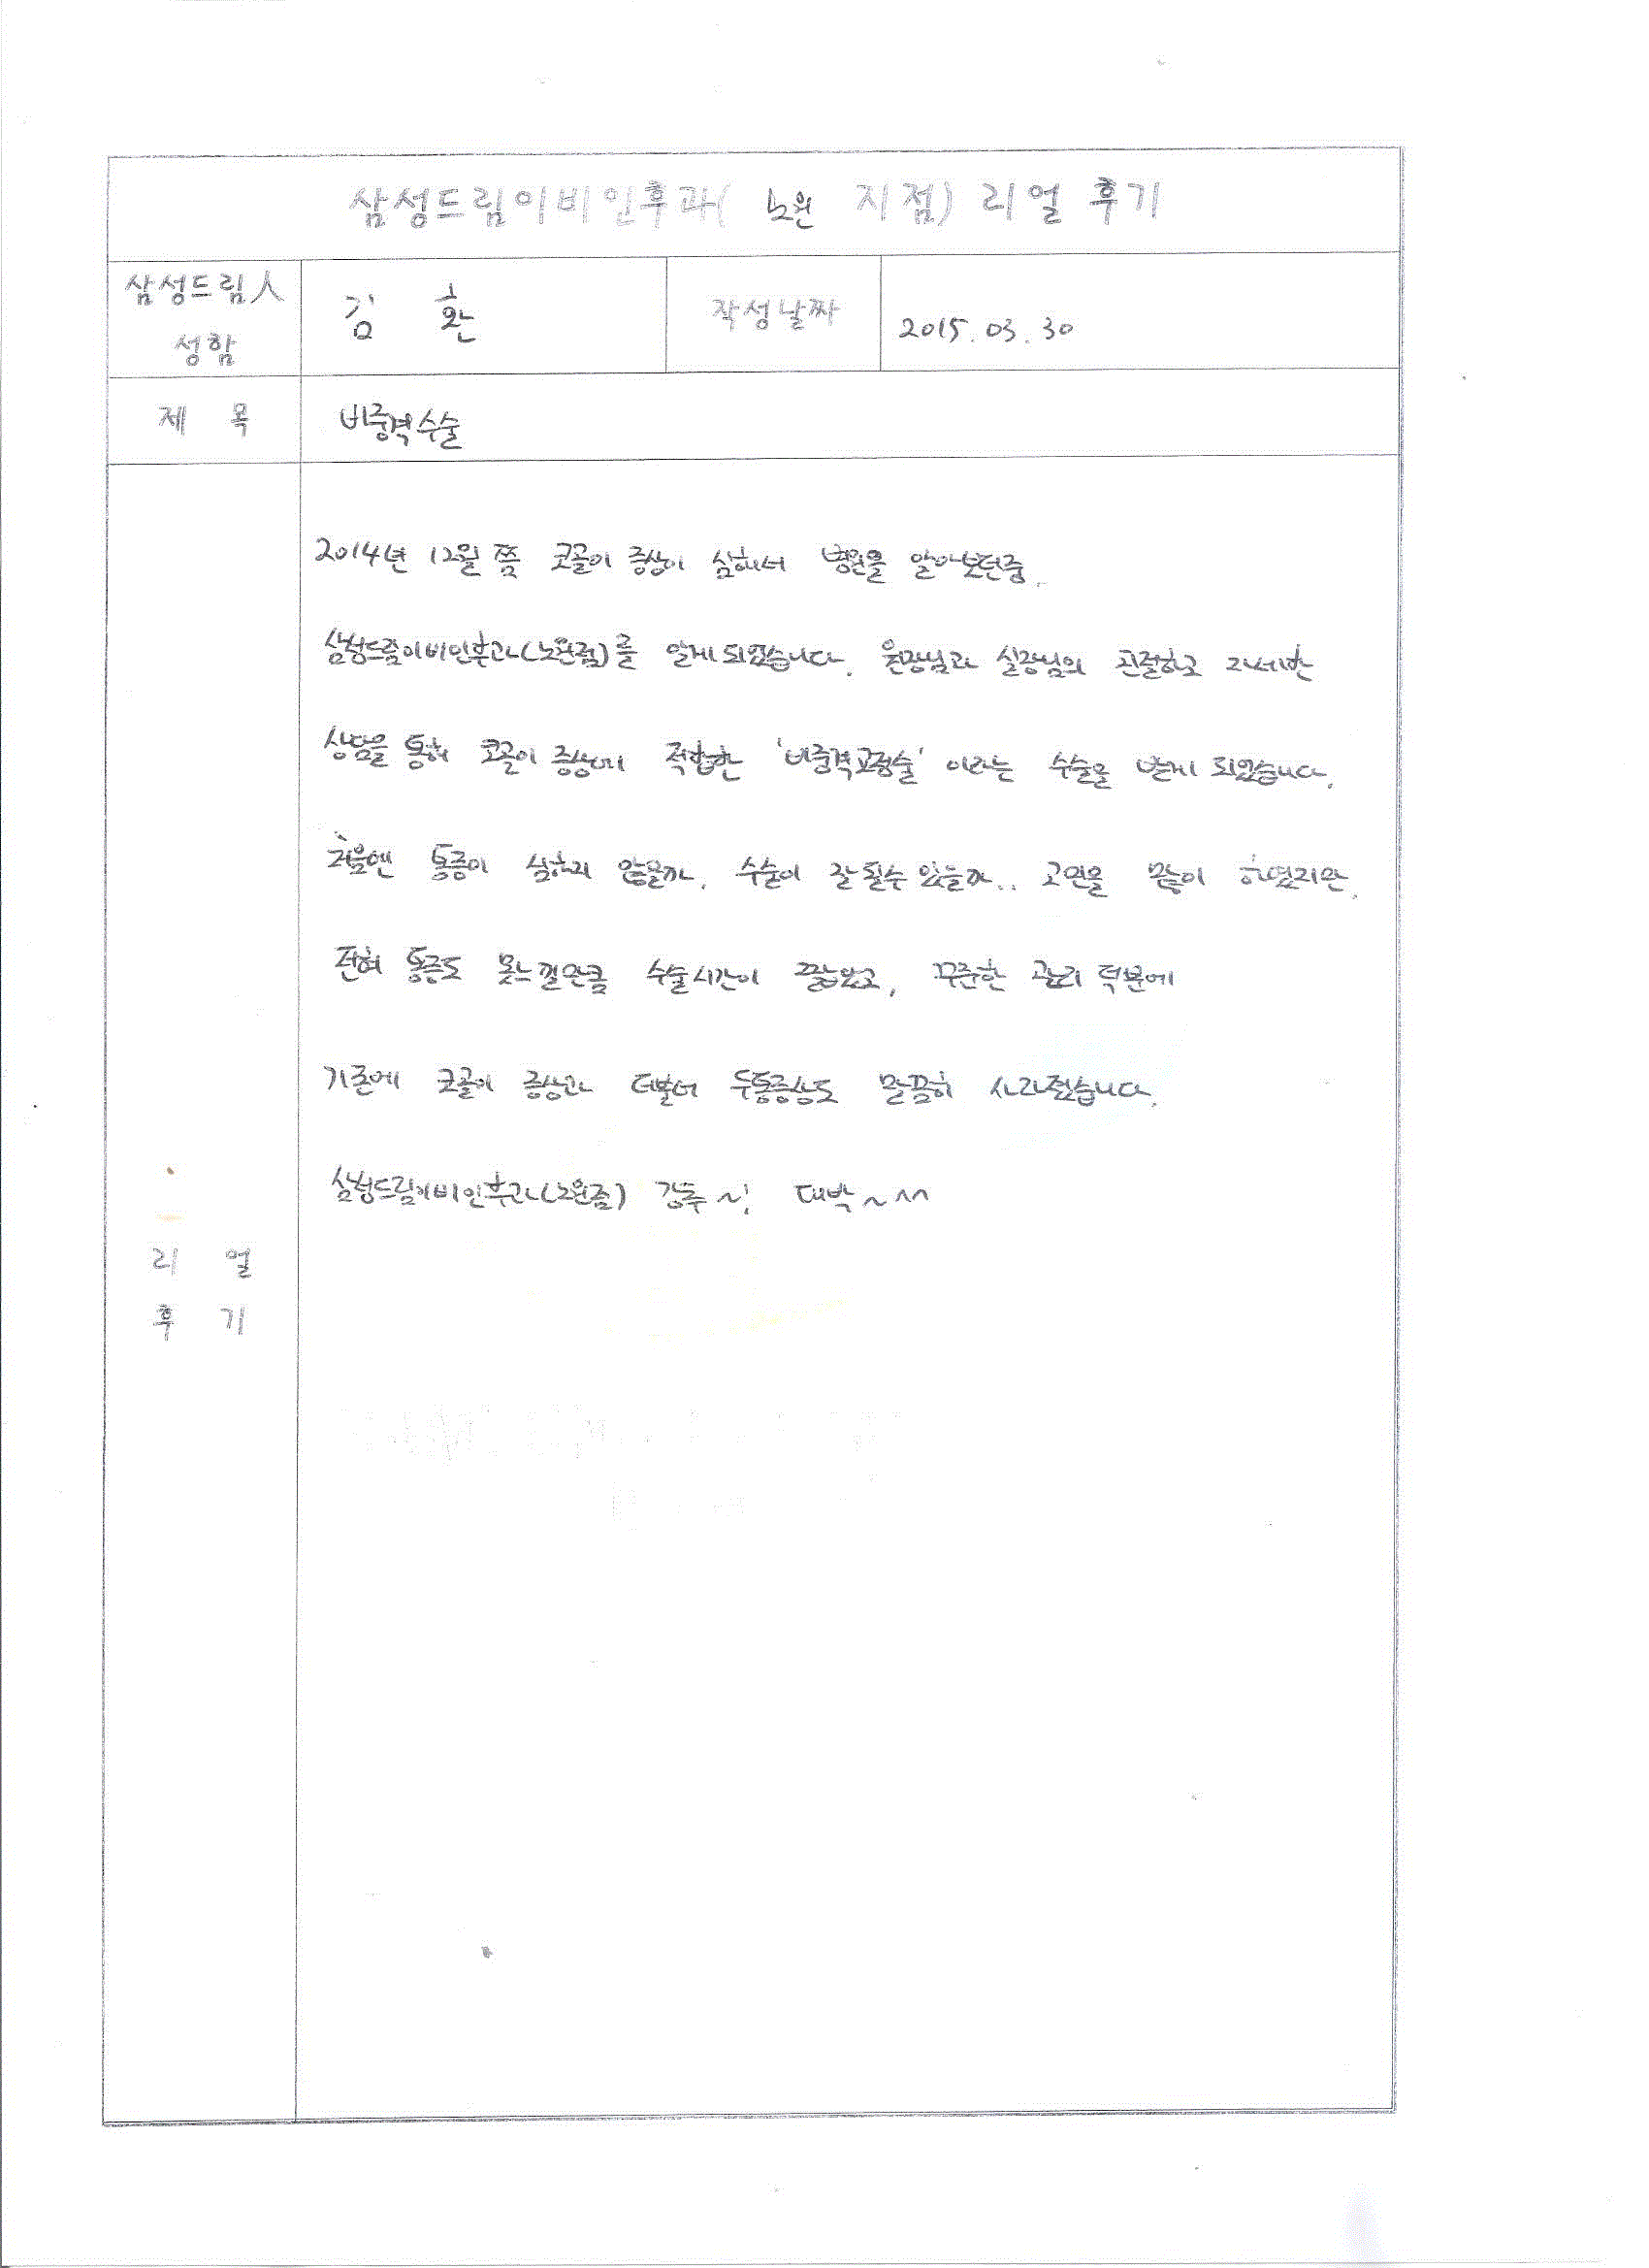 삼성드림이비인후과( 노원 지점) 리얼 후기
삼성드림人 성함
김 환
작성날짜
2015.03.30
제 목
비중격수술
2014년 12월 쯤 코골이 증상이 심해서 병원을 알아보던중.
삼성드림이비인후과(노원점)를 알게 되었습니다. 원장님과 실장님의 친절하고 자세한
상담을 통해 코골이 증상에 적합한 '비중격교정술' 이라는 수술을 받게 되었습니다.
처음엔 통증이 심하지 않을까, 수술이 잘 될수 있을까.. 고민을 많이 하였지만,
전혀 통증도 못느낄만큼 수술시간이 짧았고, 꾸준한 관리 덕분에
기존에 코골이 증상과 더불어 두통증상도 말끔히 사라졌습니다.
삼성드림이비인후과(노원점) 강추~! 대박~^^
리 얼
후 기